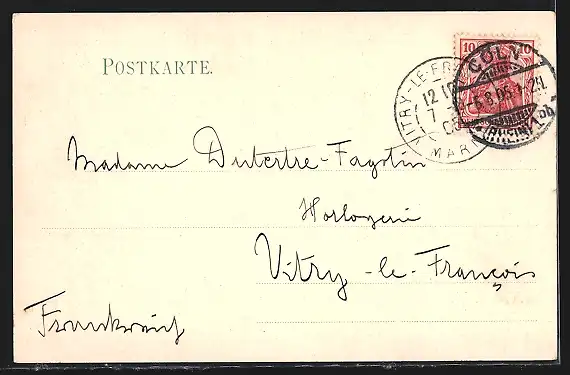 POSTKARTE.
10 10
VITRY-LE-FR
12 10
7
MARN
CÖLN
6.8.05
(RHEIN) 1
Madame Dutertre-Fagotin
Horlogerie
Vitry-le-François
Frankreich